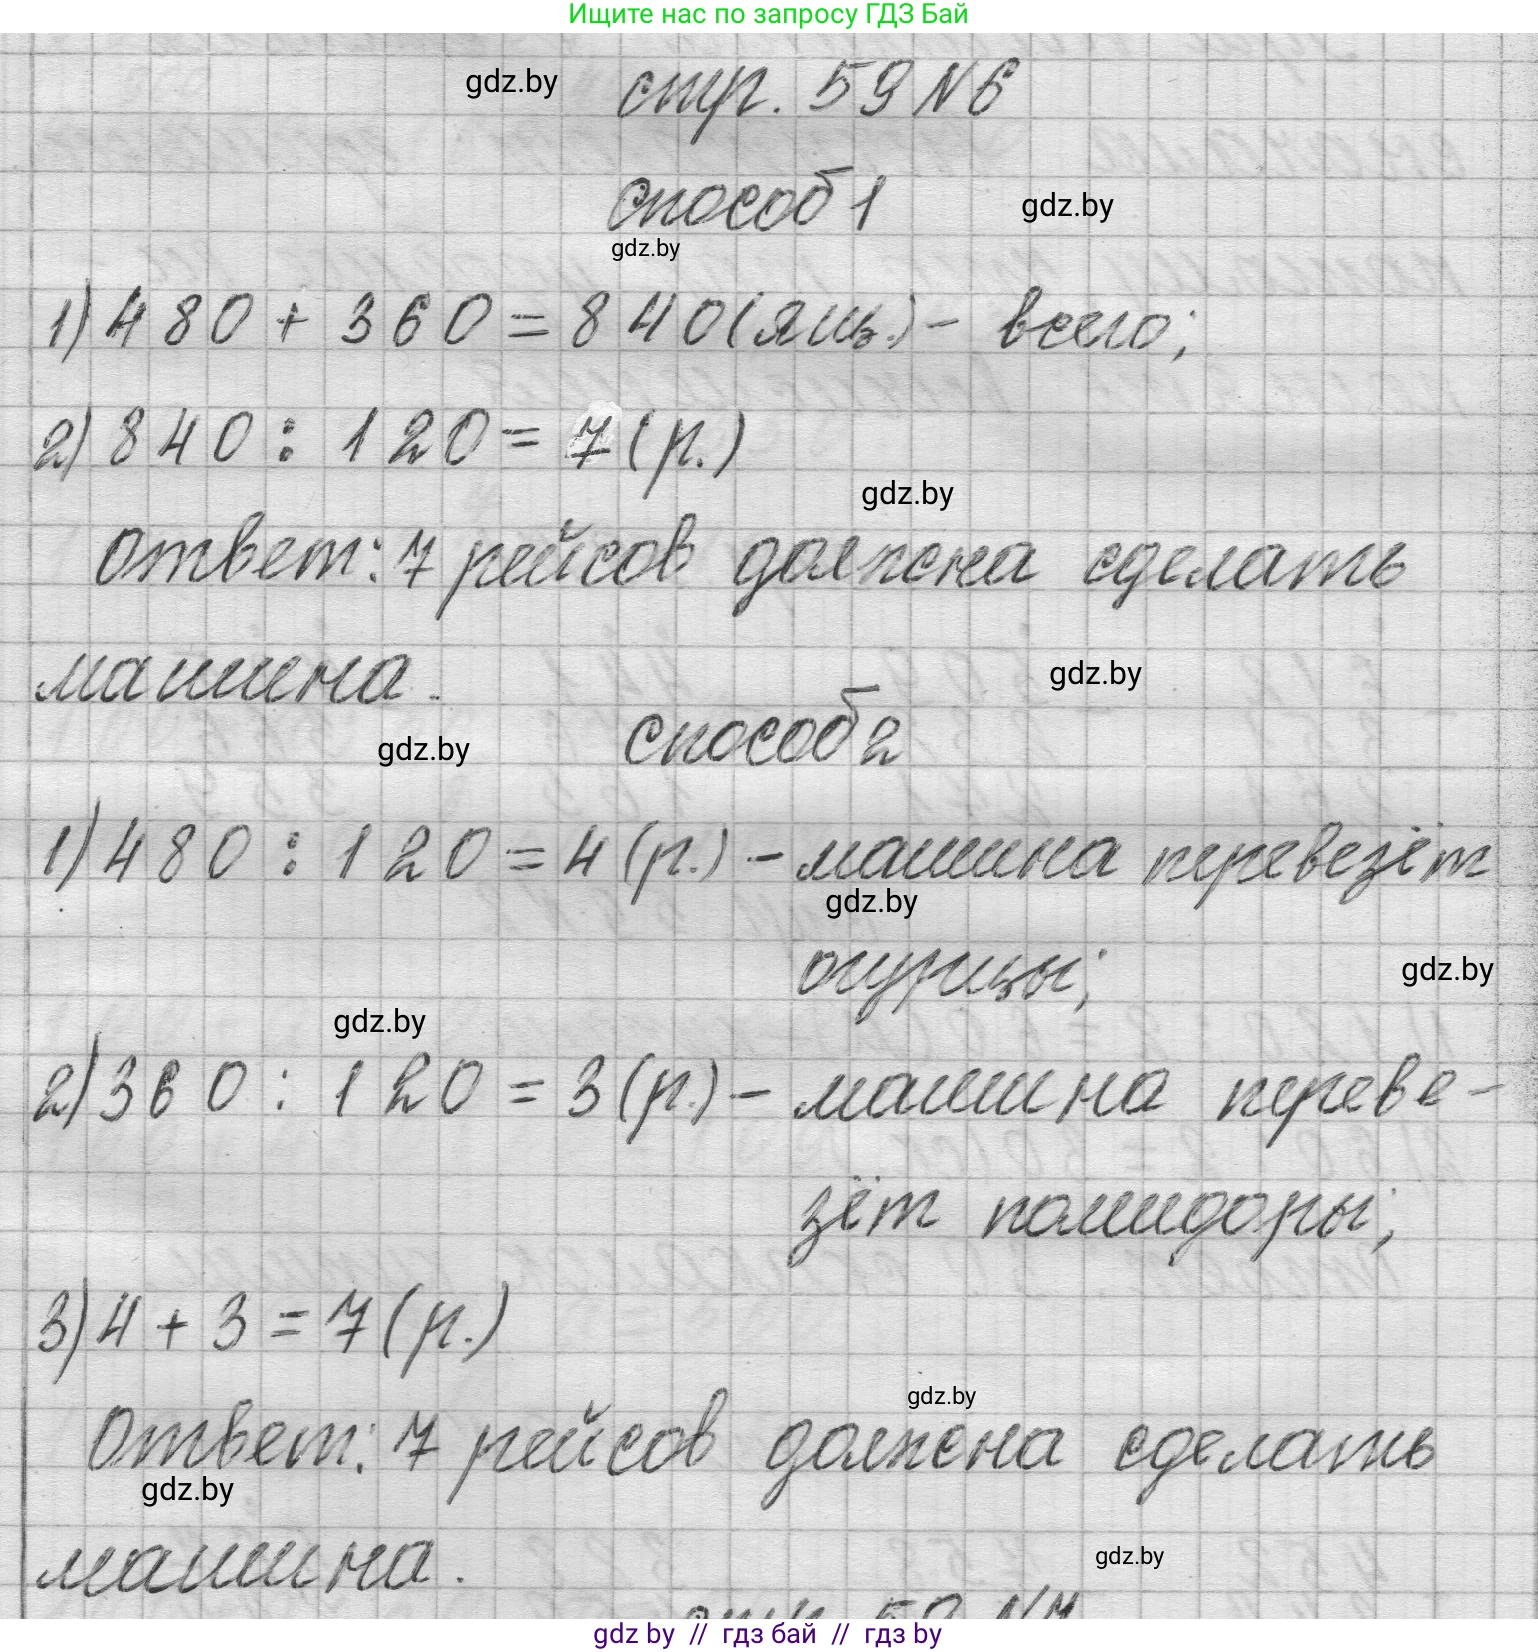 Ищите нас по запросу ГДЗ Бай
gdz.by
стр. 59 №6
способ 1
gdz.by
gdz.by
1) 480 + 360 = 840 (ящ.) - всего;
2) 840 : 120 = 7 (р.)
gdz.by
Ответ: 7 рейсов должна сделать
машина.
gdz.by
способ 2
gdz.by
1) 480 : 120 = 4 (р.) - машина перевезёт
gdz.by
огурцы;
gdz.by
gdz.by
2) 360 : 120 = 3 (р.) - машина переве-
зёт помидоры;
3) 4 + 3 = 7 (р.)
gdz.by
Ответ: 7 рейсов должна сделать
gdz.by
машина.
gdz.by
стр. 59 №7
gdz by // гдз бай // гдз by